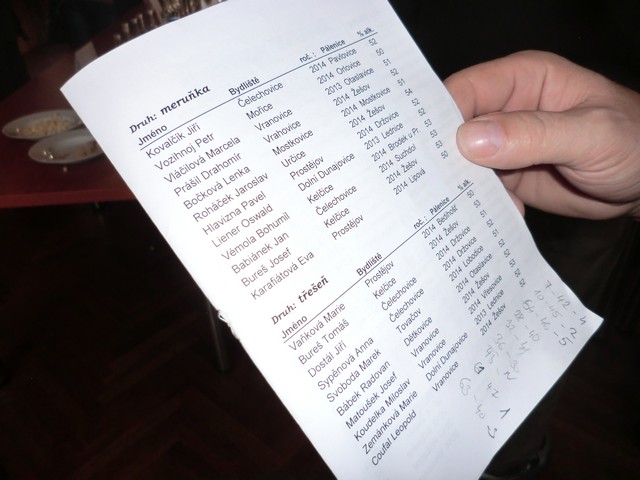 Druh: meruňka
Jméno Bydliště roč.: Pálenice % alk.
Kovalčík Jiří Čelechovice 2014 Pavlovice 52
Vozihnoj Petr Mořice 2014 Orlovice 50
Vláčilová Marcela Vranovice 2013 Otaslavice 51
Prášil Drahomír Vrahovice 2014 Žešov 52
Bočková Lenka Mostkovice 2014 Mostkovice 51
Roháček Jaroslav Určice 2014 Žešov 54
Hlavizna Pavel Prostějov 2014 Držovice 52
Liener Oswald Dolní Dunajovice 2013 Lednice 52
Vémola Bohumil Kelčice 2014 Brodek u Pr. 53
Babiánek Jan Čelechovice 2014 Suchdol 53
Bureš Josef Kelčice 2014 Žešov 53
Karafiátová Eva Prostějov 2014 Lipová 50
Druh: třešeň
Jméno Bydliště roč.: Pálenice % alk.
Vaňková Marie Prostějov 2014 Bedihošť 50
Bureš Tomáš Kelčice 2014 Žešov 53
Dostál Jiří Čelechovice 2014 Držovice 51
Sypěnová Anna Čelechovice 2014 Držovice 52
Svoboda Marek Tovačov 2014 Lobodice 51
Bábek Radovan Dětkovice 2014 Otaslavice 52
Matoušek Josef Vranovice 2014 Žešov 53
Koudelka Miloslav Vranovice 2014 Vřesovice
Zemánková Marie Dolní Dunajovice 2013 Lednice 52
Coufal Leopold Vranovice 2014 Žešov 52